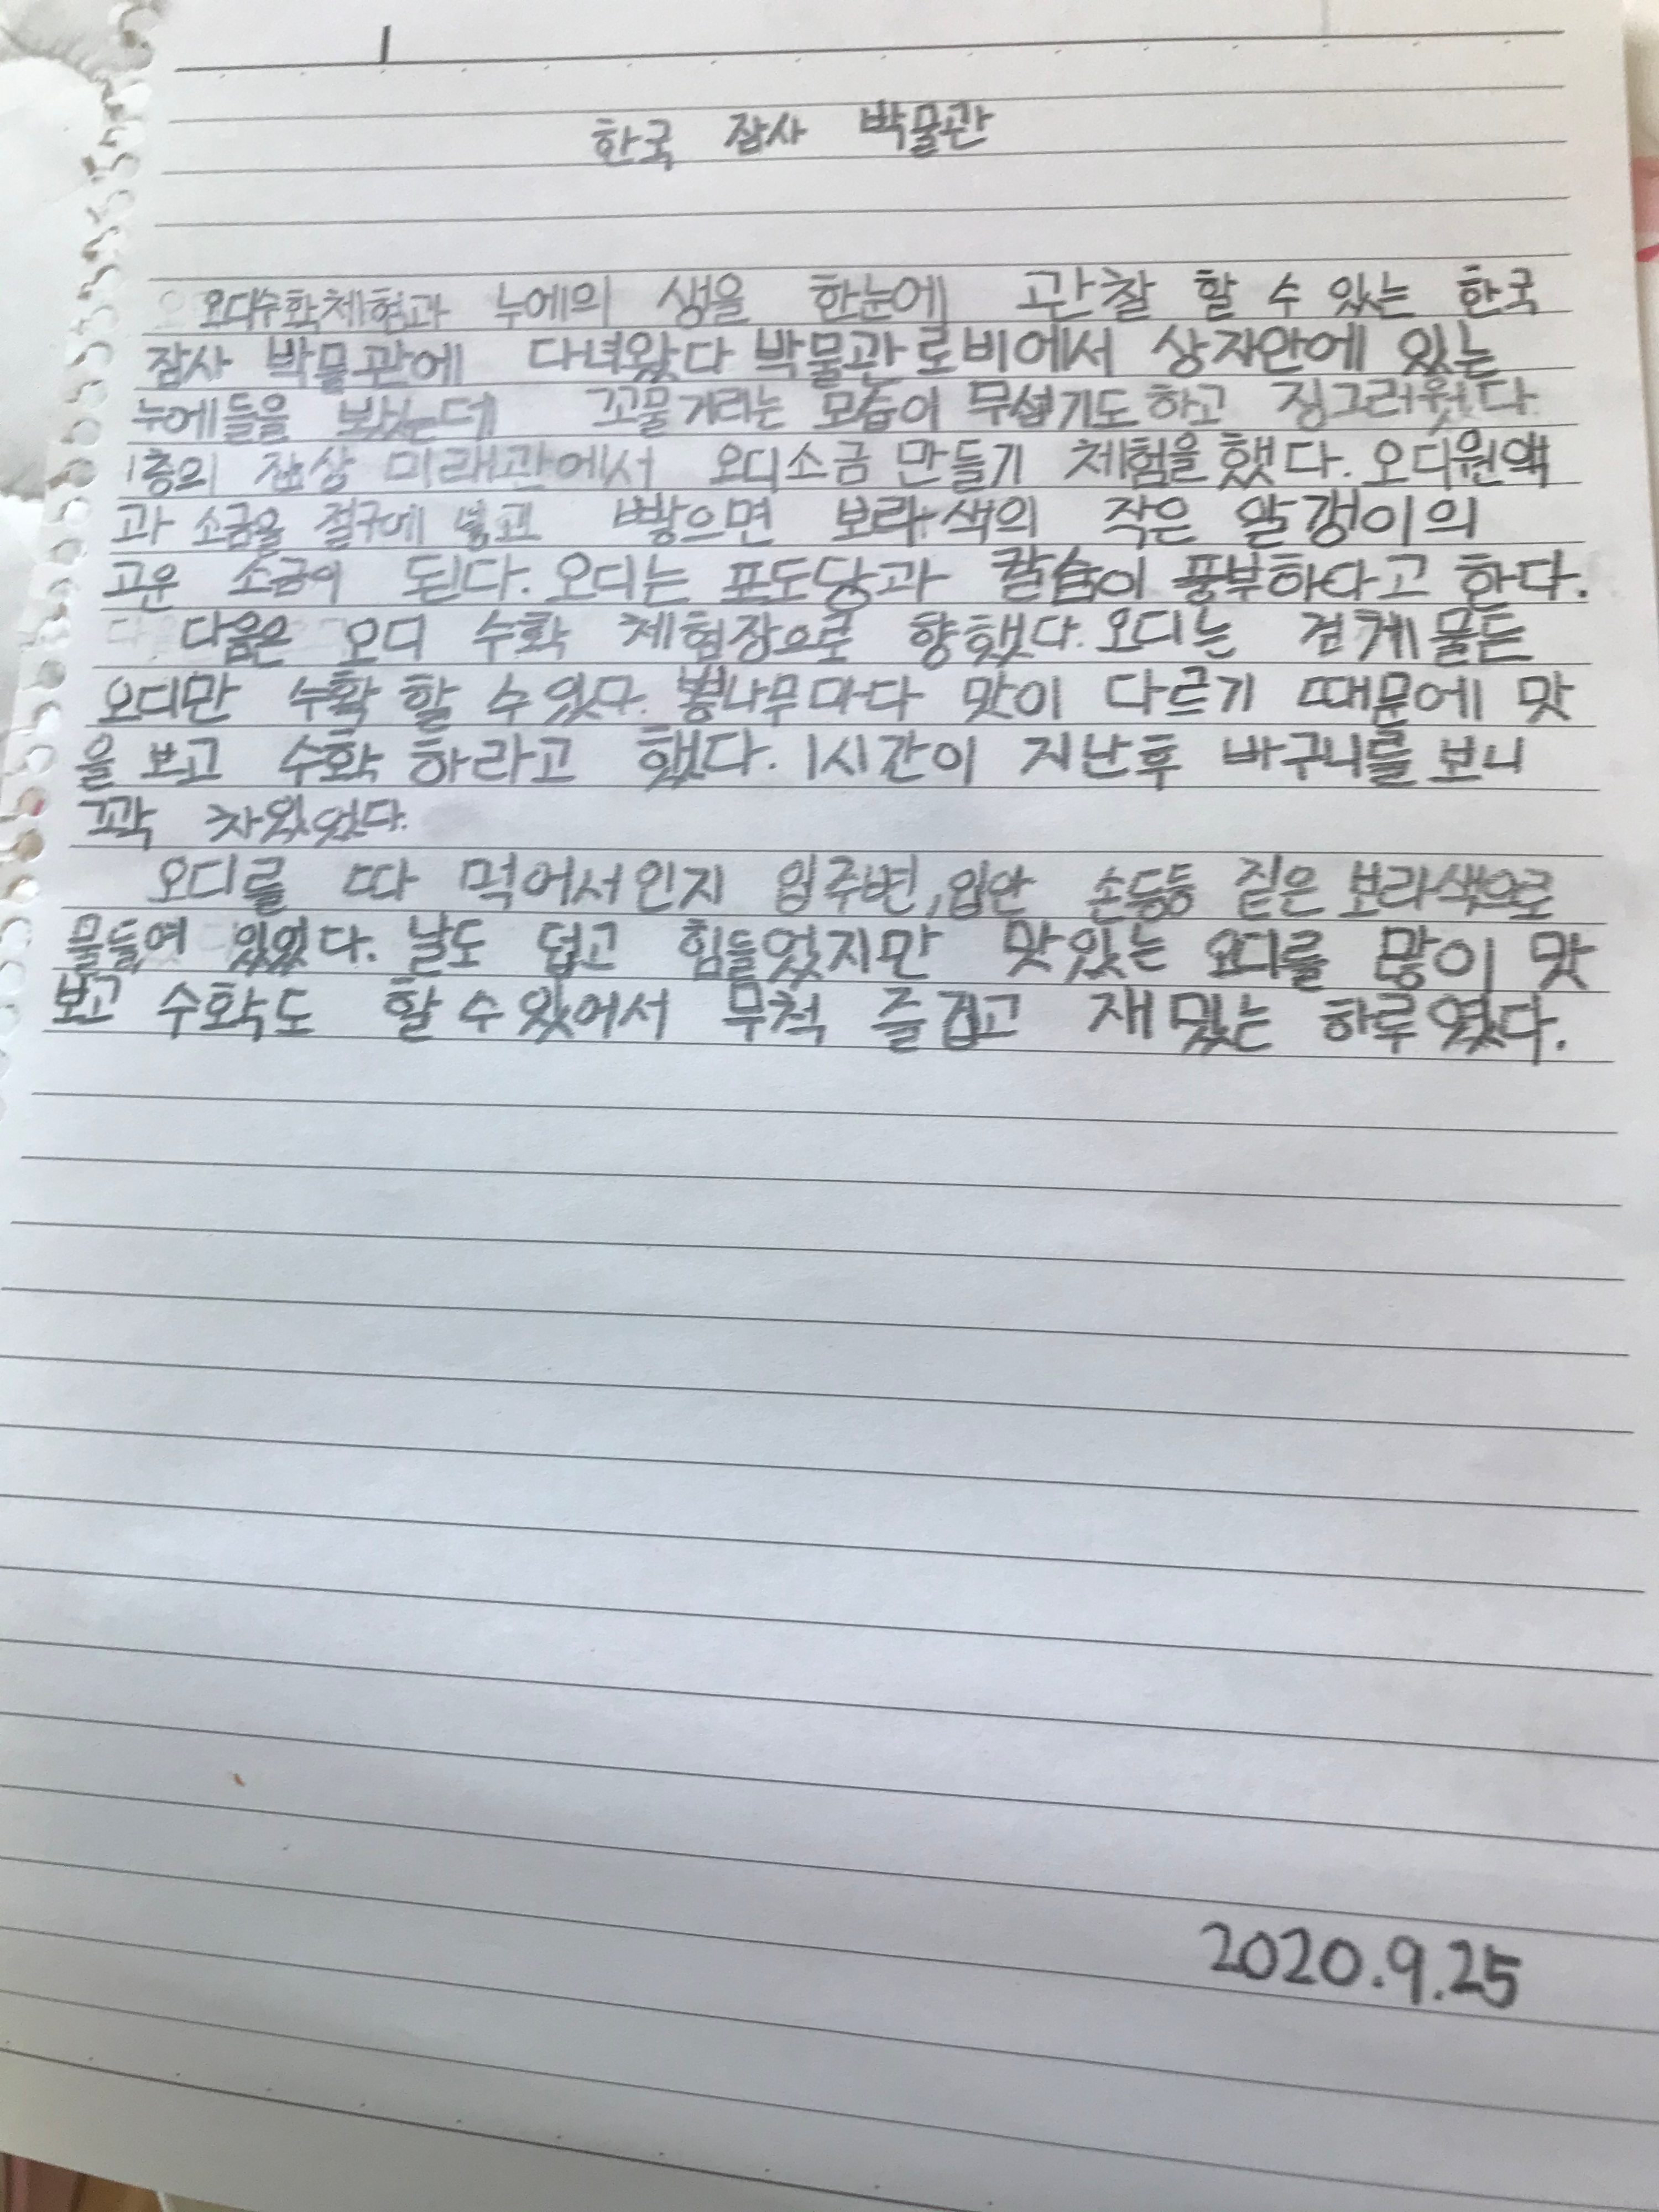 한국 잠사 박물관
오디수확체험과 누에의 생을 한눈에 관찰 할 수 있는 한국
잠사 박물관에 다녀왔다 박물관로비에서 상자안에 있는
누에들을 봤는데 꼬물거리는 모습이 무섭기도하고 징그러웠다
1층의 잠상 미래관에서 오디소금 만들기 체험을했다. 오디원액
과 소금을 절구에 넣고 빻으면 보라색의 작은 알갱이의
고운 소금이 된다. 오디는 포도당과 칼슘이 풍부하다고 한다.
다음은 오디 수확 체험장으로 향했다. 오디는 검게물든
오디만 수확 할 수있다. 뽕나무마다 맛이 다르기 때문에 맛
을 보고 수확 하라고 했다. 1시간이 지난후 바구니를 보니
꽉 차있었다.
오디를 따 먹어서인지 입주변,입안 손등등 짙은 보라색으로
물들여 있었다. 날도 덥고 힘들었지만 맛있는 오디를 많이 맛
보고 수확도 할수있어서 무척 즐겁고 재밌는 하루였다.
2020.9.25